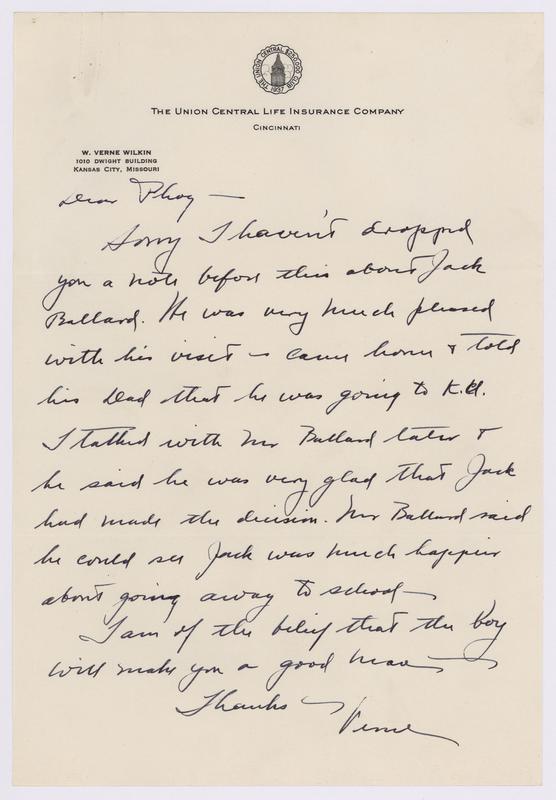 THE UNION CENTRAL $500,000 CLUB
1937
THE UNION CENTRAL LIFE INSURANCE COMPANY
CINCINNATI
W. VERNE WILKIN
1010 DWIGHT BUILDING
KANSAS CITY, MISSOURI
Dear Phog —
Sorry I haven't dropped
you a note before this about Jack
Ballard. He was very much pleased
with his visit – came home & told
his Dad that he was going to K.U.
I talked with Mr Ballard later &
he said he was very glad that Jack
had made the decision. Mr Ballard said
he could see Jack was much happier
about going away to school —
I am of the belief that the boy
will make you a good man —
Thanks —
Verne